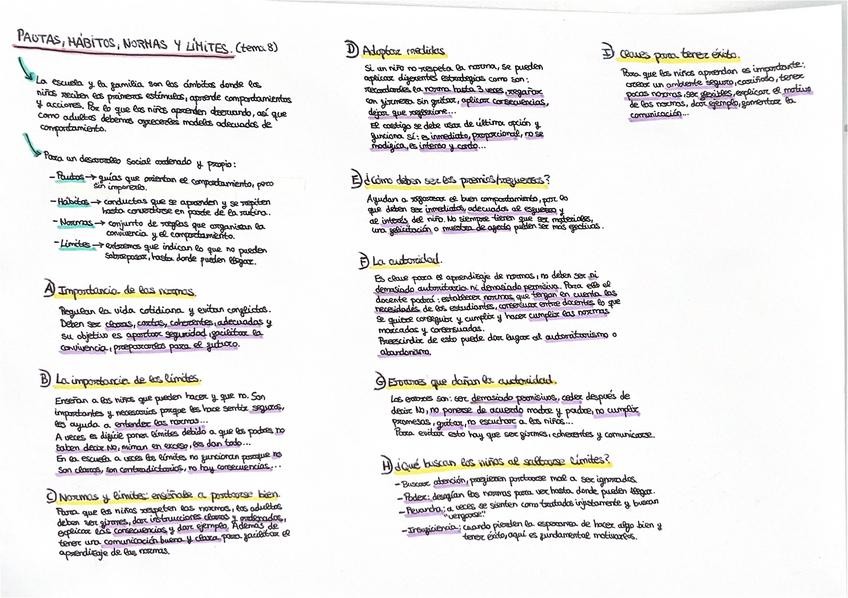 PAUTAS, HÁBITOS, NORMAS Y LÍMITES. (tema 8)
La escuela y la familia son los ámbitos donde los
niños reciben los primeros estímulos, aprende comportamientos
y acciones. Por lo que los niños aprenden observando, así que
como adultos debemos ofrecerles modelos adecuados de
comportamiento.
Para un desarrollo social ordenado y propio:
- Pautas → guías que orientan el comportamiento, pero
sin imponerlo.
- Hábitos → conductas que se aprenden y se repiten
hasta convertirse en parte de la rutina.
- Normas → conjunto de reglas que organizan la
convivencia y el comportamiento.
- Límites → extremos que indican lo que no pueden
sobrepasar, hasta donde pueden llegar.
A) Importancia de las normas.
Regulan la vida cotidiana y evitan conflictos.
Deben ser claras, cortas, coherentes, adecuadas y
su objetivo es aportar seguridad, facilitar la
convivencia, prepararlos para el futuro.
B) La importancia de los límites.
Enseñan a los niños que pueden hacer y que no. Son
importantes y necesarios porque les hace sentir seguros,
les ayuda a entender las normas...
A veces es difícil poner límites debido a que los padres no
saben decir No, miman en exceso, les dan todo...
En la escuela a veces los límites no funcionan porque no
son claros, son contradictorios, no hay consecuencias...
C) Normas y límites: enséñale a portarse bien.
Para que los niños respeten las normas, los adultos
deben ser firmes, dar instrucciones claras y ordenadas,
explicar las consecuencias y dar ejemplo. Además de
tener una comunicación buena y clara para facilitar el
aprendizaje de las normas.
D) Adoptar medidas
Si un niño no respeta la norma, se pueden
aplicar diferentes estrategias como son:
recordarles la norma hasta 3 veces, regañar
con firmeza sin gritar, aplicar consecuencias,
dejar que reflexione...
El castigo se debe usar de última opción y
funciona si: es inmediato, proporcional, no se
modifica, es intenso y corto...
E) ¿Cómo deben ser los premios/refuerzos?
Ayudan a reforzar el buen comportamiento, por lo
que deben ser inmediatos, adecuados al esfuerzo y
al interés del niño. No siempre tienen que ser materiales,
una felicitación o muestra de apoyo pueden ser más efectivas.
F) La autoridad.
Es clave para el aprendizaje de normas, no deben ser ni
demasiado autoritario ni demasiado permisivo. Para ello el
docente podrá: establecer normas que tengan en cuenta las
necesidades de los estudiantes, consensuar entre docentes lo que
se quiere conseguir y cumplir y hacer cumplir las normas
marcadas y consensuadas.
Prescindir de esto puede dar lugar al autoritarismo o
abandonismo.
G) Errores que dañan la autoridad.
Los errores son: ser demasiado permisivos, ceder después de
decir No, no ponerse de acuerdo madre y padre, no cumplir
promesas, gritar, no escuchar a los niños...
Para evitar esto hay que ser firmes, coherentes y comunicarse.
H) ¿Qué buscan los niños al saltarse límites?
- Buscar atención, prefieren portarse mal a ser ignorados.
- Poder: desafían las normas para ver hasta donde pueden llegar.
- Revancha: a veces se sienten como tratados injustamente y buscan
"vengarse".
- Insuficiencia: cuando pierden la esperanza de hacer algo bien y
tener éxito, aquí es fundamental motivarlos.
I) Claves para tener éxito.
Para que los niños aprendan es importante:
crear un ambiente seguro, cariñoso, tener
pocas normas, ser flexibles, explicar el motivo
de las normas, dar ejemplo, fomentar la
comunicación...